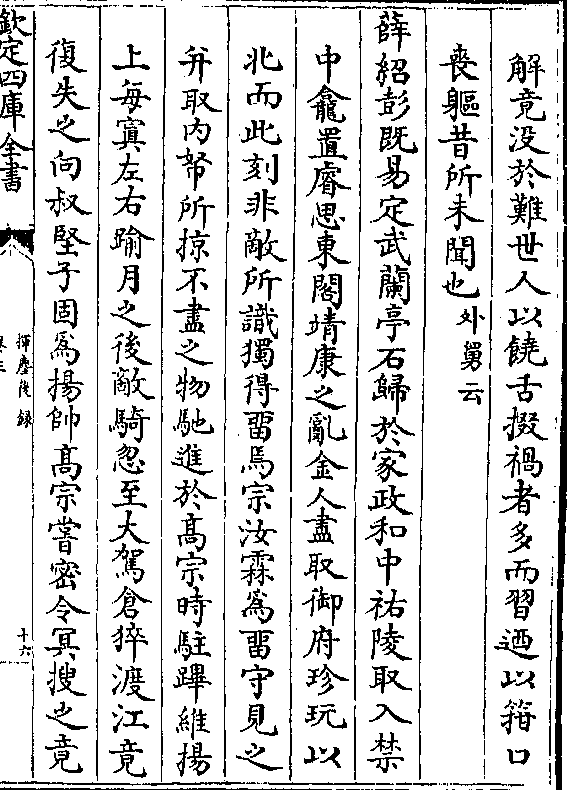 解竟没於難世人以饒舌掇禍者多而習迺以箝口
喪軀昔所未聞也外舅云
薛紹彭既易定武蘭亭石歸於家政和中祐陵取入禁
中龕置睿思東閣靖康之亂金人盡取御府珍玩以
北而此刻非敵所識獨得留焉宗汝霖為留守見之
并取内帑所掠不盡之物馳進於髙宗時駐蹕維揚
上毎寘左右踰月之後敵騎忽至大駕倉猝渡江竟
復失之向叔堅子固為揚帥髙宗嘗密令冥搜之竟
欽定四庫全書
揮麈後録
卷三
十六